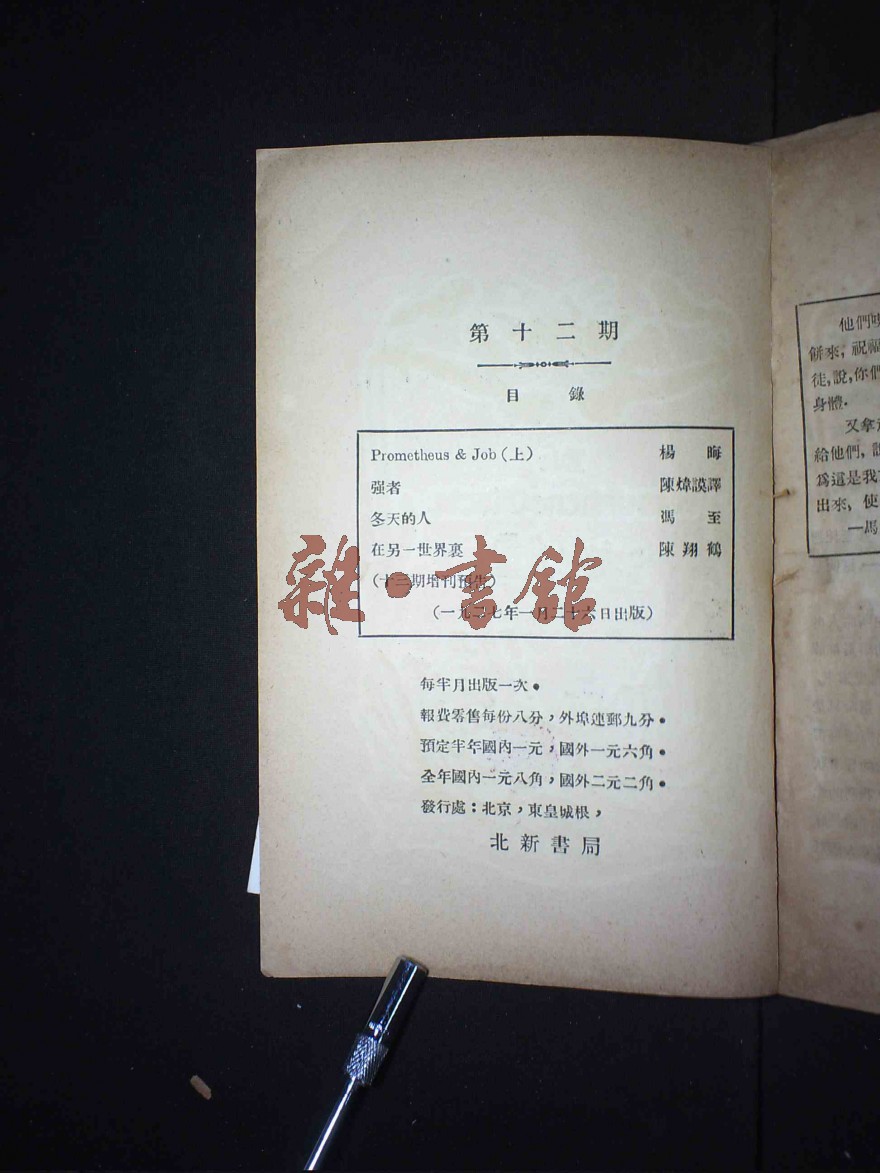 第十二期
目錄
Prometheus & Job（上） 楊晦
强者 陳煒謨譯
冬天的人 馮至
在另一世界裏 陳翔鶴
（十三期增刊預告）
（一九二七年一月二十六日出版）
每半月出版一次。
報費零售每份八分，外埠連郵九分。
預定半年國內一元，國外一元六角。
全年國內一元八角，國外二元二角。
發行處：北京，東皇城根，
北新書局
雜·書館
他們
餅來，祝福
徒，說，你們
身體。
又拿
給他們，說
爲這是我
出來，使
—馬